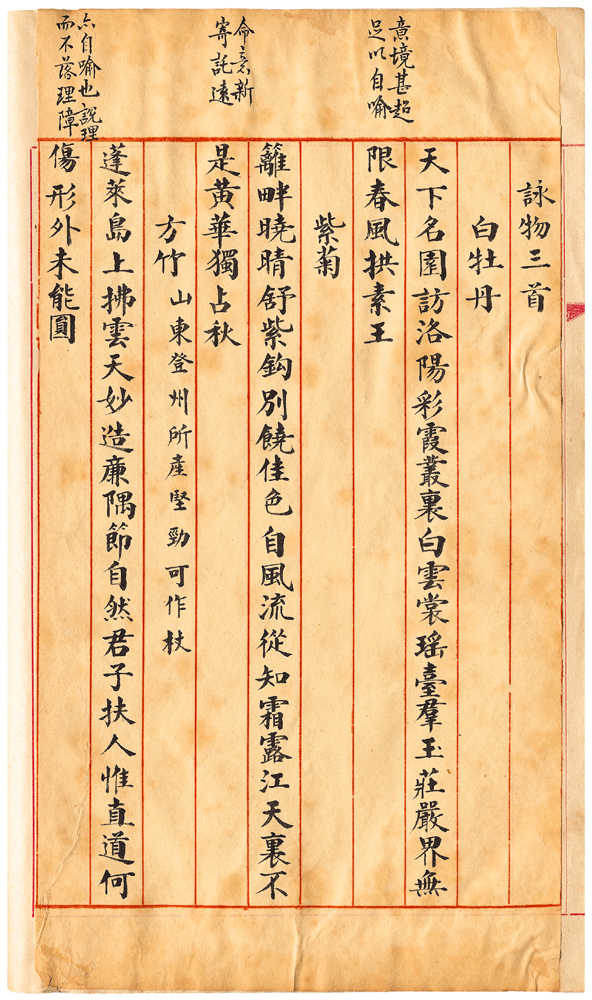 意境甚超
足以自喻
命意新
寄託遠
六自喻也說理
而不落理障
詠物三首
白牡丹
天下名園訪洛陽彩霞叢裏白雲裳瑤臺羣玉莊嚴界無
限春風拱素王
紫菊
籬畔曉晴舒紫鈎別饒佳色自風流從知霜露江天裏不
是黃華獨占秋
方竹山東登州所產堅勁可作杖
蓬萊島上拂雲天妙造廉隅節自然君子扶人惟直道何
傷形外未能圓